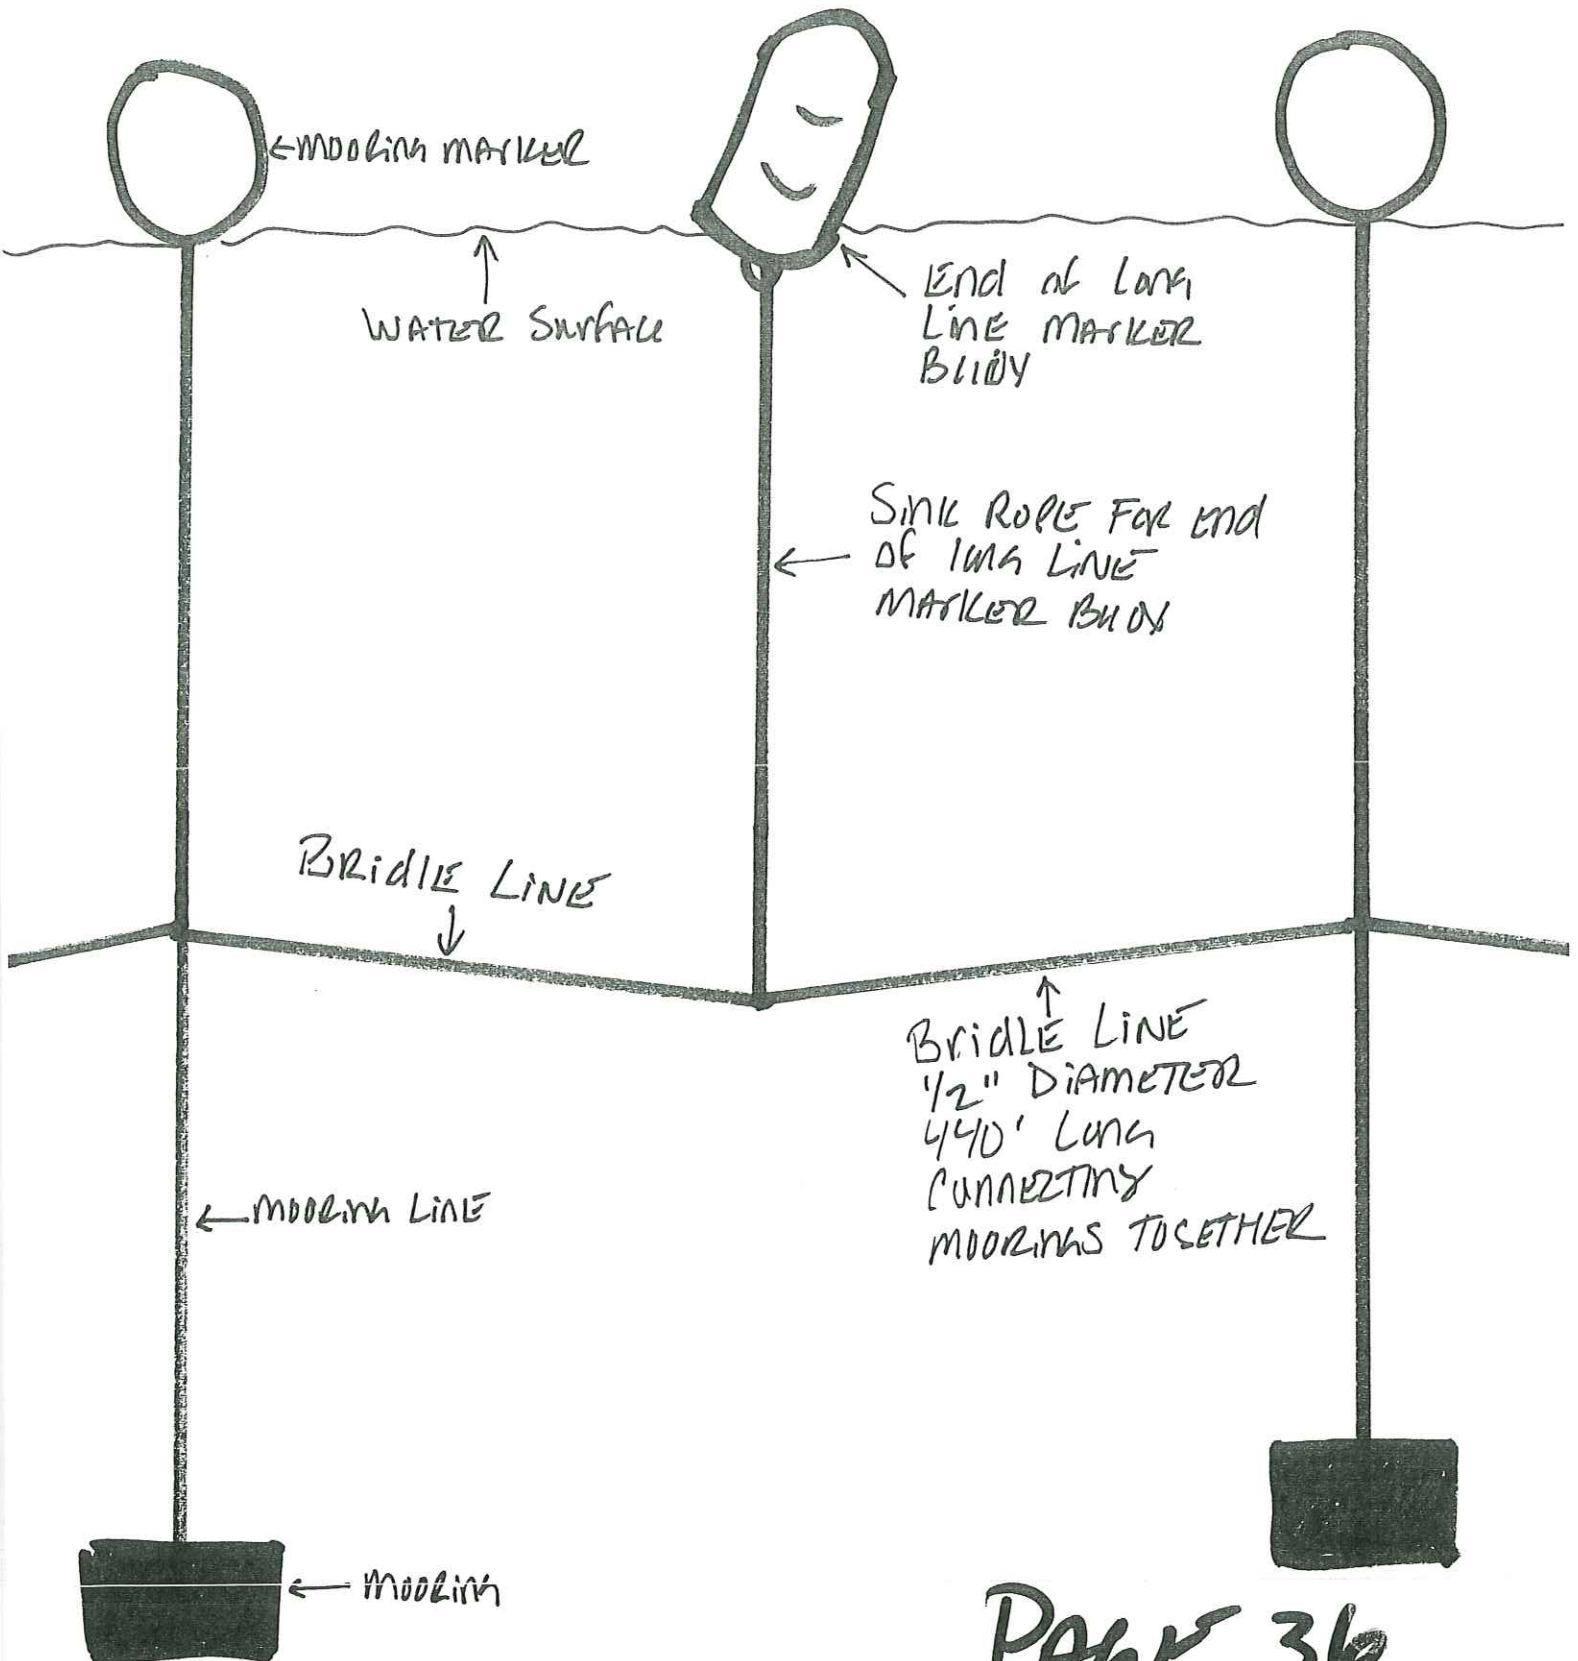 MOORING MARKER
WATER SURFACE
END OF LONG
LINE MARKER
BUOY
SINK ROPE FOR END
OF LONG LINE
MARKER BUOY
BRIDLE LINE
BRIDLE LINE
1/2" DIAMETER
440' LONG
CONNECTING
MOORINGS TOGETHER
MOORING LINE
MOORING
PAGE 36